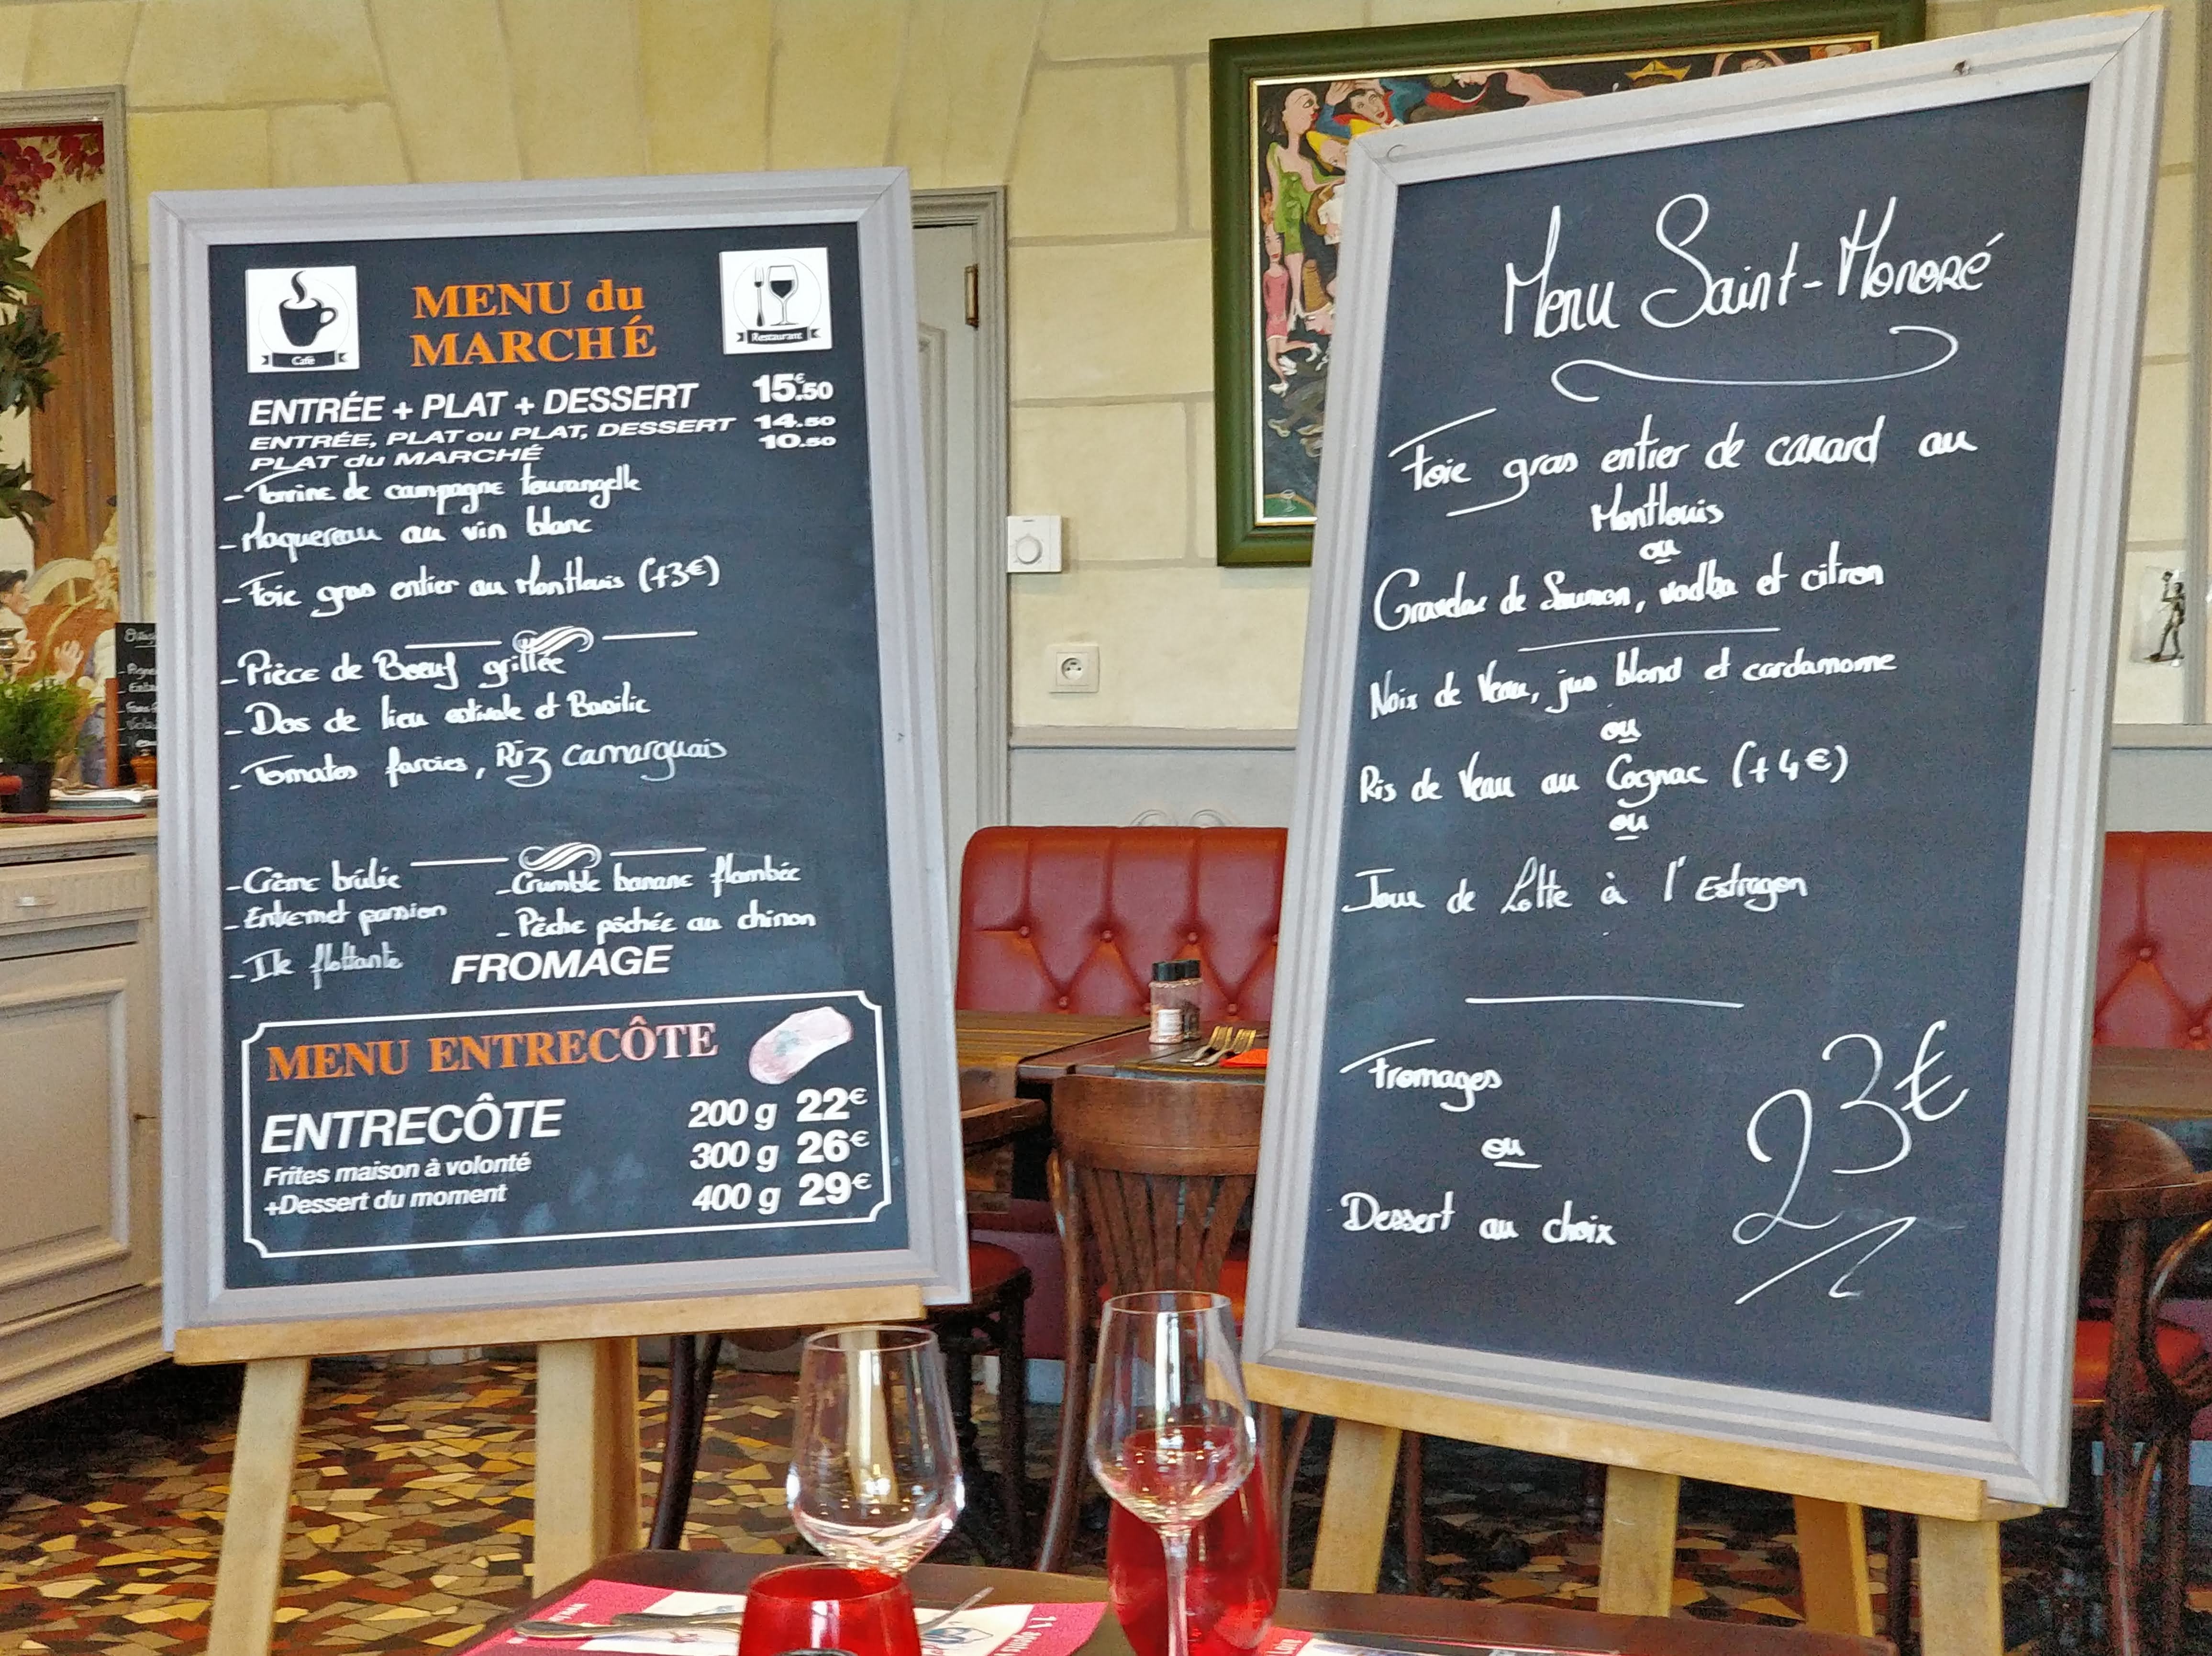 Café
MENU du
MARCHÉ
Restaurant
ENTRÉE + PLAT + DESSERT 15€.50
ENTRÉE, PLAT ou PLAT, DESSERT 14.50
PLAT du MARCHÉ 10.50
- Terrine de campagne tourangelle
- Maquereau au vin blanc
- Foie gras entier au Montlouis (+3€)
- Pièce de Boeuf grillée
- Dos de lieu estivale et Basilic
- Tomates farcies, Riz Camarguais
- Crème brûlée - Crumble banane flambée
- Entremet passion - Pêche pôchée au chinon
- Ile flottante FROMAGE
MENU ENTRECÔTE
ENTRECÔTE 200 g 22€
Frites maison à volonté 300 g 26€
+Dessert du moment 400 g 29€
Menu Saint-Honoré
Foie gras entier de canard au
Montlouis
ou
Gravelax de Saumon, vodka et citron
Noix de Veau, jus blond et cardamome
ou
Ris de Veau au Cognac (+4€)
ou
Joue de Lotte à l'Estragon
Fromages
ou
Dessert au choix
23€